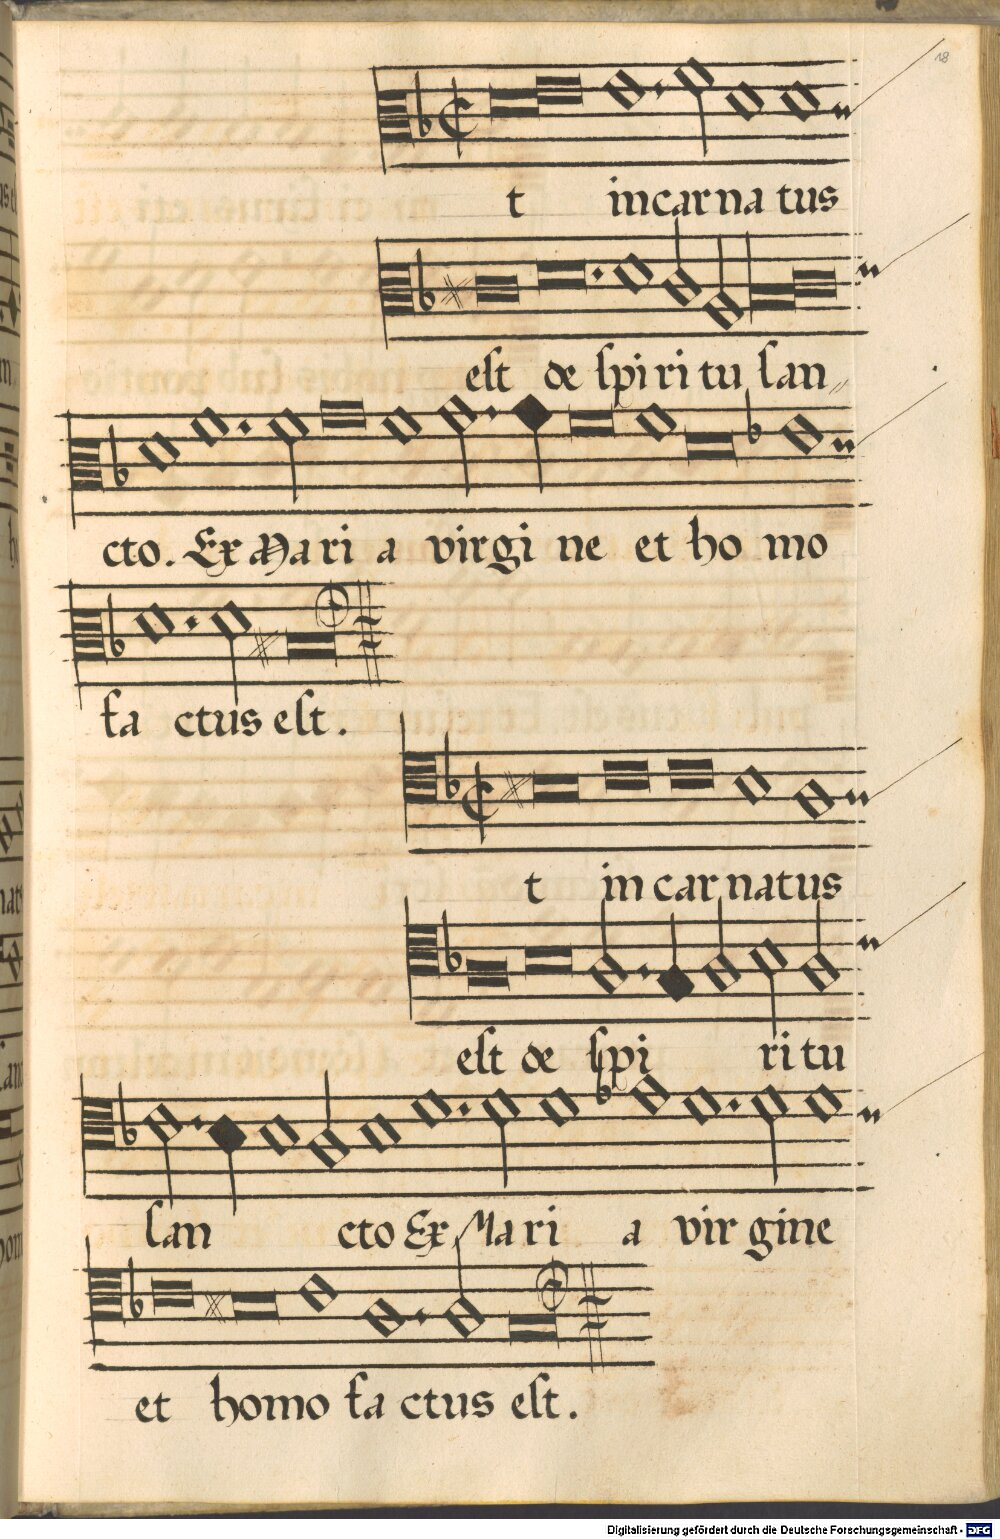 18
t incarnatus
est de spiritu san
cto. Ex Maria virgine et homo
factus est.
t incarnatus
est de spiritu
san cto Ex Maria virgine
et homo factus est.
Digitalisierung gefördert durch die Deutsche Forschungsgemeinschaft - DFG